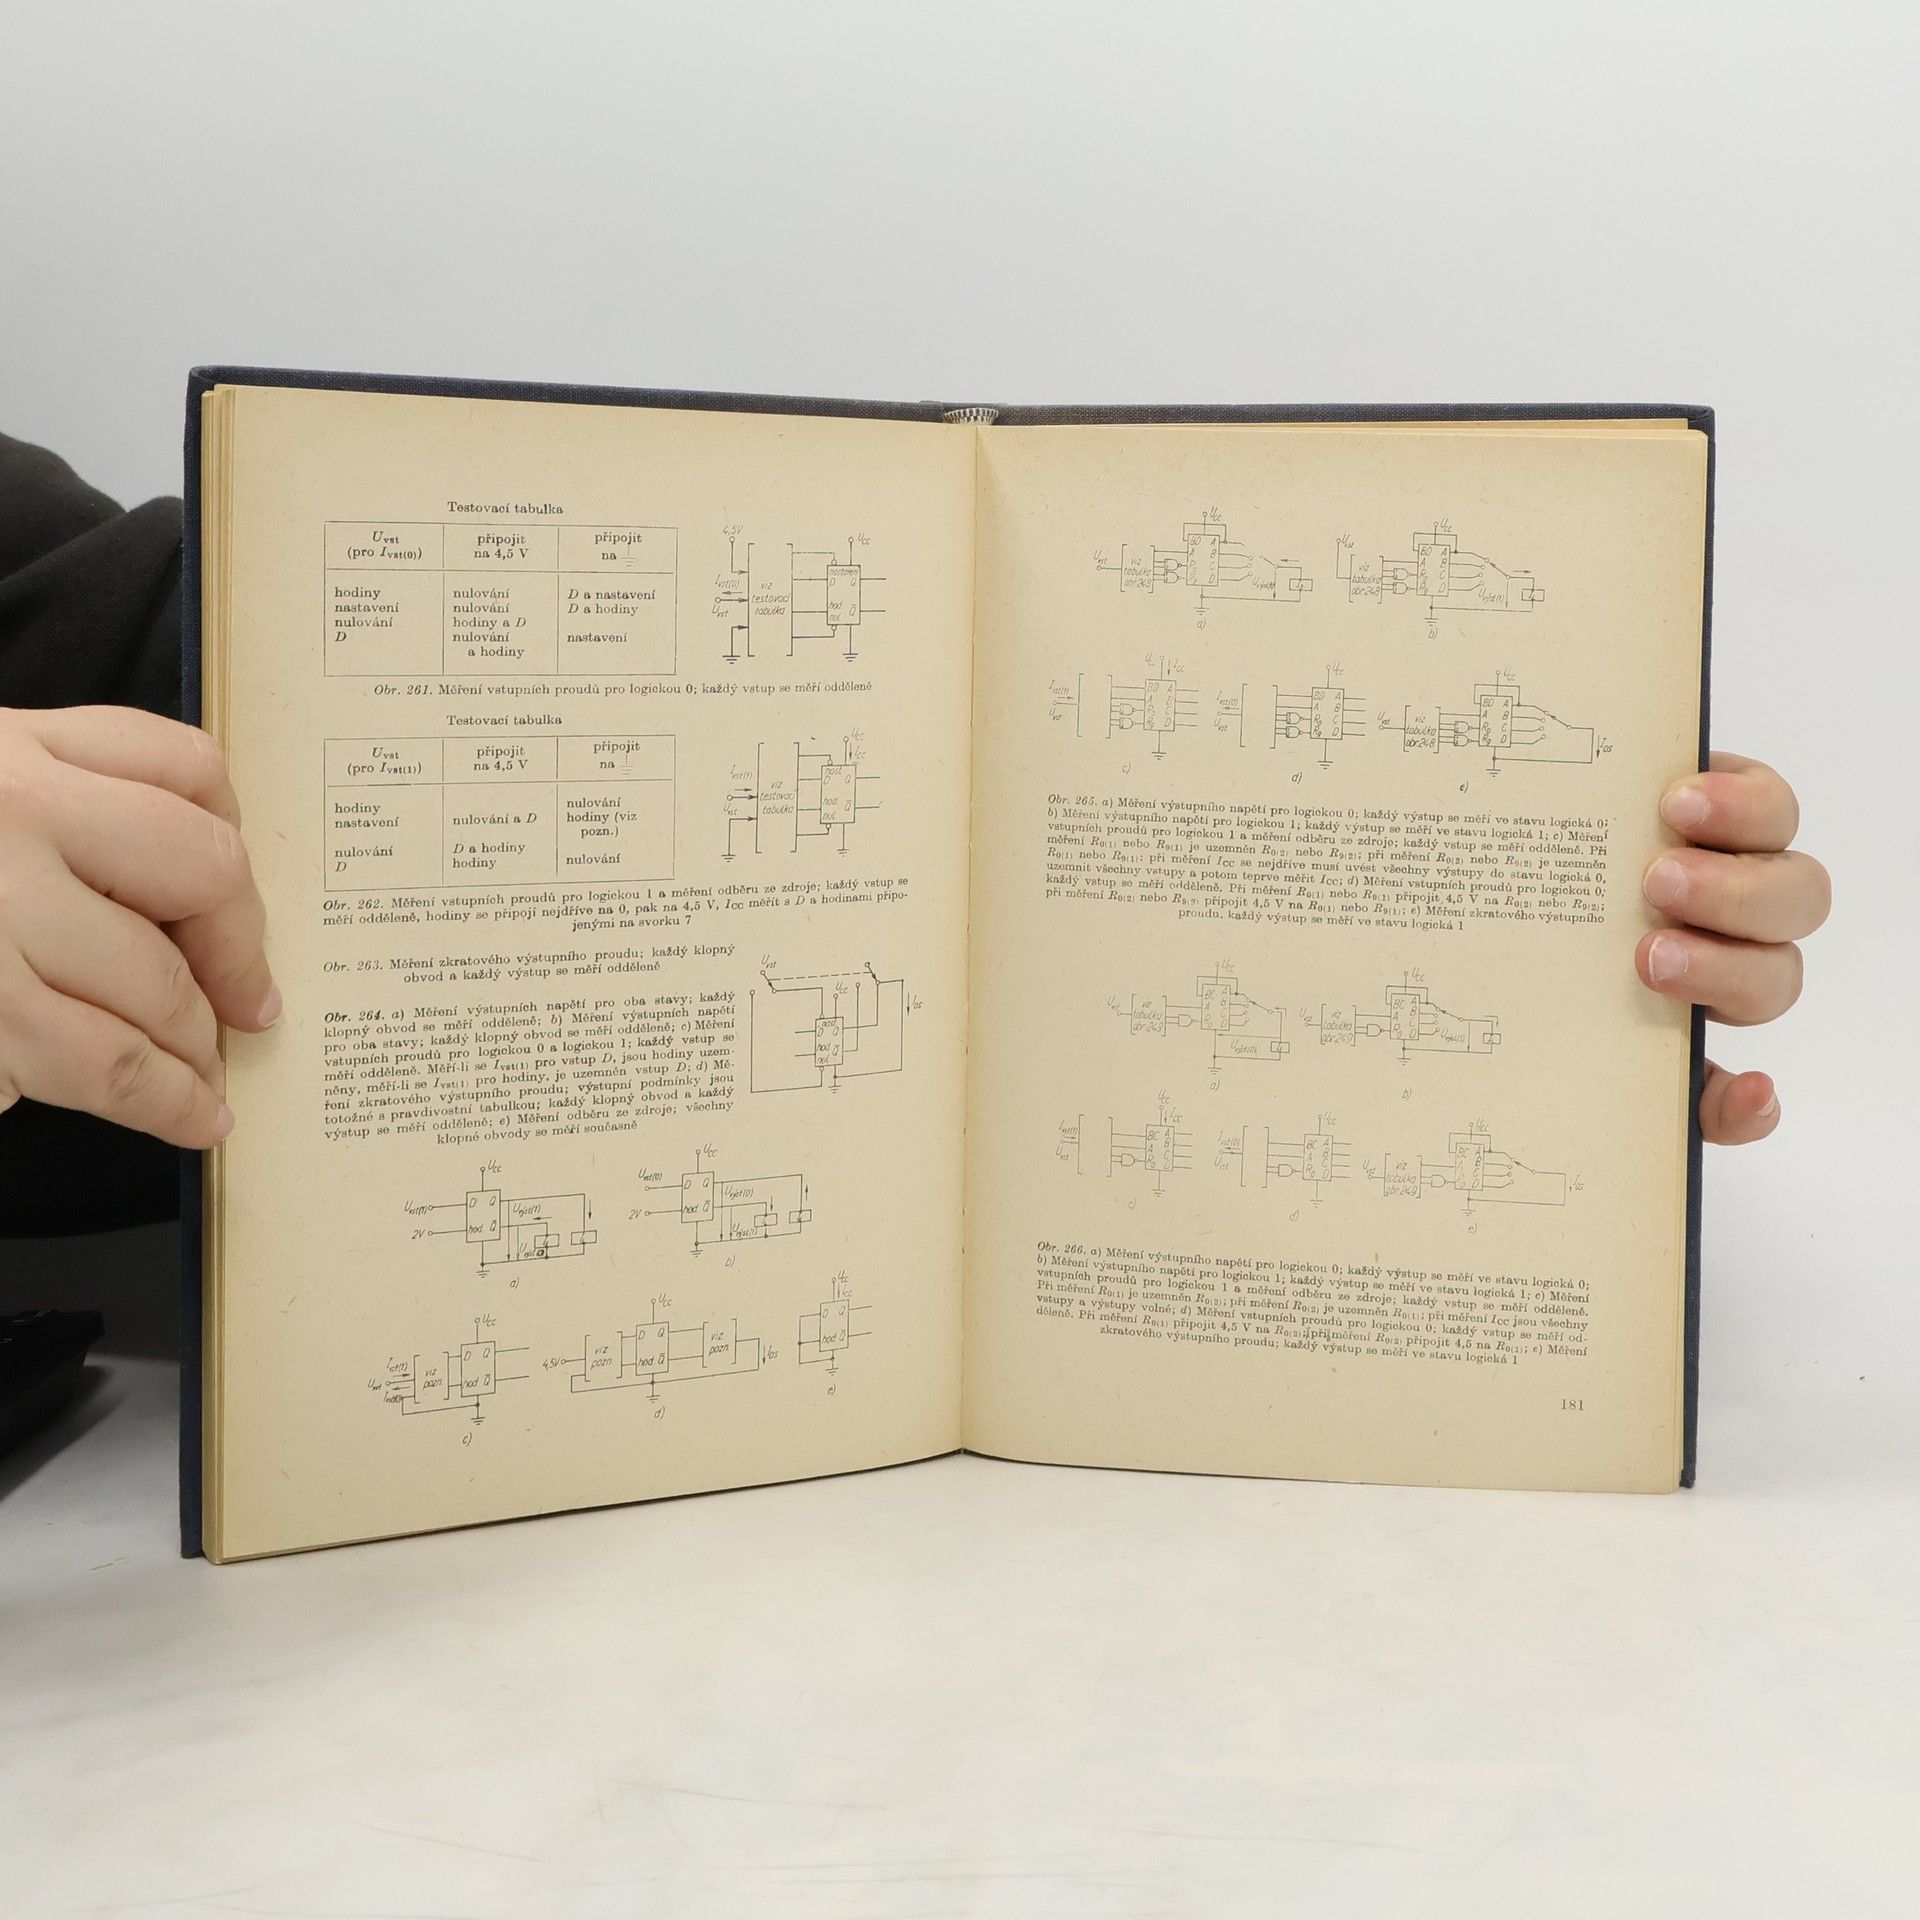 Testovací tabulka
Uvst (pro Ivst(0)) připojit na 4,5 V připojit na
hodiny nulování D a nastavení
nastavení nulování D a hodiny
nulování hodiny a D
D nulování nastavení
a hodiny
4,5V
Ucc
Ivst(0)
Uvst
viz
testovací
tabulka
nastavení
D Q
hod Q̅
nul
Obr. 261. Měření vstupních proudů pro logickou 0; každý vstup se měří odděleně
Testovací tabulka
Uvst (pro Ivst(1)) připojit na 4,5 V připojit na
hodiny nulování
nastavení nulování a D hodiny (viz
pozn.)
nulování D a hodiny
D hodiny nulování
Ucc
Icc
Ivst(1)
Uvst
viz
testovací
tabulka
nast
D Q
hod Q̅
nul
Obr. 262. Měření vstupních proudů pro logickou 1 a měření odběru ze zdroje; každý vstup se
měří odděleně, hodiny se připojí nejdříve na 0, pak na 4,5 V, Icc měřit s D a hodinami připo-
jenými na svorku 7
Obr. 263. Měření zkratového výstupního proudu; každý klopný
obvod a každý výstup se měří odděleně
Uvst
Ucc
IOS
nast
D Q
hod Q̅
nul
Obr. 264. a) Měření výstupních napětí pro oba stavy; každý
klopný obvod se měří odděleně; b) Měření výstupních napětí
pro oba stavy; každý klopný obvod se měří odděleně; c) Měření
vstupních proudů pro logickou 0 a logickou 1; každý vstup se
měří odděleně. Měří-li se Ivst(1) pro vstup D, jsou hodiny uzem-
něny, měří-li se Ivst(1) pro hodiny, je uzemněn vstup D; d) Mě-
ření zkratového výstupního proudu; výstupní podmínky jsou
totožné s pravdivostní tabulkou; každý klopný obvod a každý
výstup se měří odděleně; e) Měření odběru ze zdroje; všechny
klopné obvody se měří současně
Ucc
Uvst(1)
2V
D Q
hod Q̅
Uvýst(1)
a)
Ucc
Uvst(0)
2V
D Q
hod Q̅
Uvýst(0)
Uvýst(1)
b)
Ucc
Ivst(1)
Uvst
viz
pozn
D Q
hod Q̅
c)
Ucc
4,5V
viz
pozn
D Q
hod Q̅
viz
pozn
IOS
d)
Ucc
Icc
D Q
hod Q̅
e)
Ucc
Uvst
viz
tabulka
obr.248
BD A
A B
R0 C
R9 D
a)
Ucc
Uvst
viz
tabulka
obr.248
BD A
A B
R0 C
R9 D
Uvýst(1)
b)
Icc
Ivst(1)
Uvst
c)
Ucc
Ivst(0)
Uvst
BD A
A B
R0 C
R9 D
d)
Ucc
Uvst
viz
tabulka
obr.248
BD A
A B
R0 C
R9 D
IOS
e)
Obr. 265. a) Měření výstupního napětí pro logickou 0; každý výstup se měří ve stavu logická 0;
b) Měření výstupního napětí pro logickou 1; každý výstup se měří ve stavu logická 1; c) Měření
vstupních proudů pro logickou 1 a měření odběru ze zdroje; každý vstup se měří odděleně. Při
měření R0(1) nebo R9(1) je uzemněn R0(2) nebo R9(2); při měření R0(2) nebo R9(2) je uzemněn
R0(1) nebo R9(1); při měření Icc se nejdříve musí uvést všechny výstupy do stavu logická 0,
uzemnit všechny vstupy a potom teprve měřit Icc; d) Měření vstupních proudů pro logickou 0;
každý vstup se měří odděleně. Při měření R0(1) nebo R9(1) připojit 4,5 V na R0(2) nebo R9(2);
při měření R0(2) nebo R9(2) připojit 4,5 V na R0(1) nebo R9(1); e) Měření zkratového výstupního
proudu, každý výstup se měří ve stavu logická 1
Ucc
viz
tabulka
obr.249
BC A
Uvýst(0)
a)
Ucc
Uvst
viz
tabulka
obr.249
BC A
Uvýst(1)
b)
Ucc
Icc
Ivst(1)
Uvst
BC A
c)
Ucc
Ivst(0)
Uvst
BC A
d)
Ucc
Uvst
viz
tabulka
obr.249
BC A
IOS
e)
Obr. 266. a) Měření výstupního napětí pro logickou 0; každý výstup se měří ve stavu logická 0;
b) Měření výstupního napětí pro logickou 1; každý výstup se měří ve stavu logická 1; c) Měření
vstupních proudů pro logickou 1 a měření odběru ze zdroje; každý vstup se měří odděleně.
Při měření R0(1) je uzemněn R0(2); při měření R0(2) je uzemněn R0(1); při měření Icc jsou všechny
vstupy a výstupy volné; d) Měření vstupních proudů pro logickou 0; každý vstup se měří od-
děleně. Při měření R0(1) připojit 4,5 V na R0(2); při měření R0(2) připojit 4,5 na R0(1); e) Měření
zkratového výstupního proudu; každý výstup se měří ve stavu logická 1
181